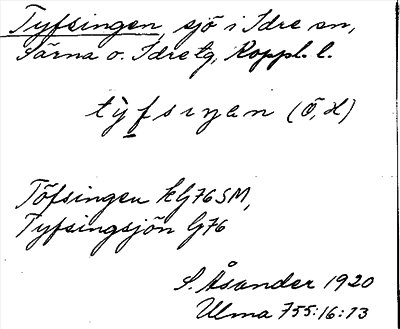 Tyfsingen, sjö i Idre sn,
Särna o. Idre tg, Koppl. l.
Töfsingen kG76SM,
Tyfsingsjön G76
S. Åsander 1920
Ulma 755:16:73